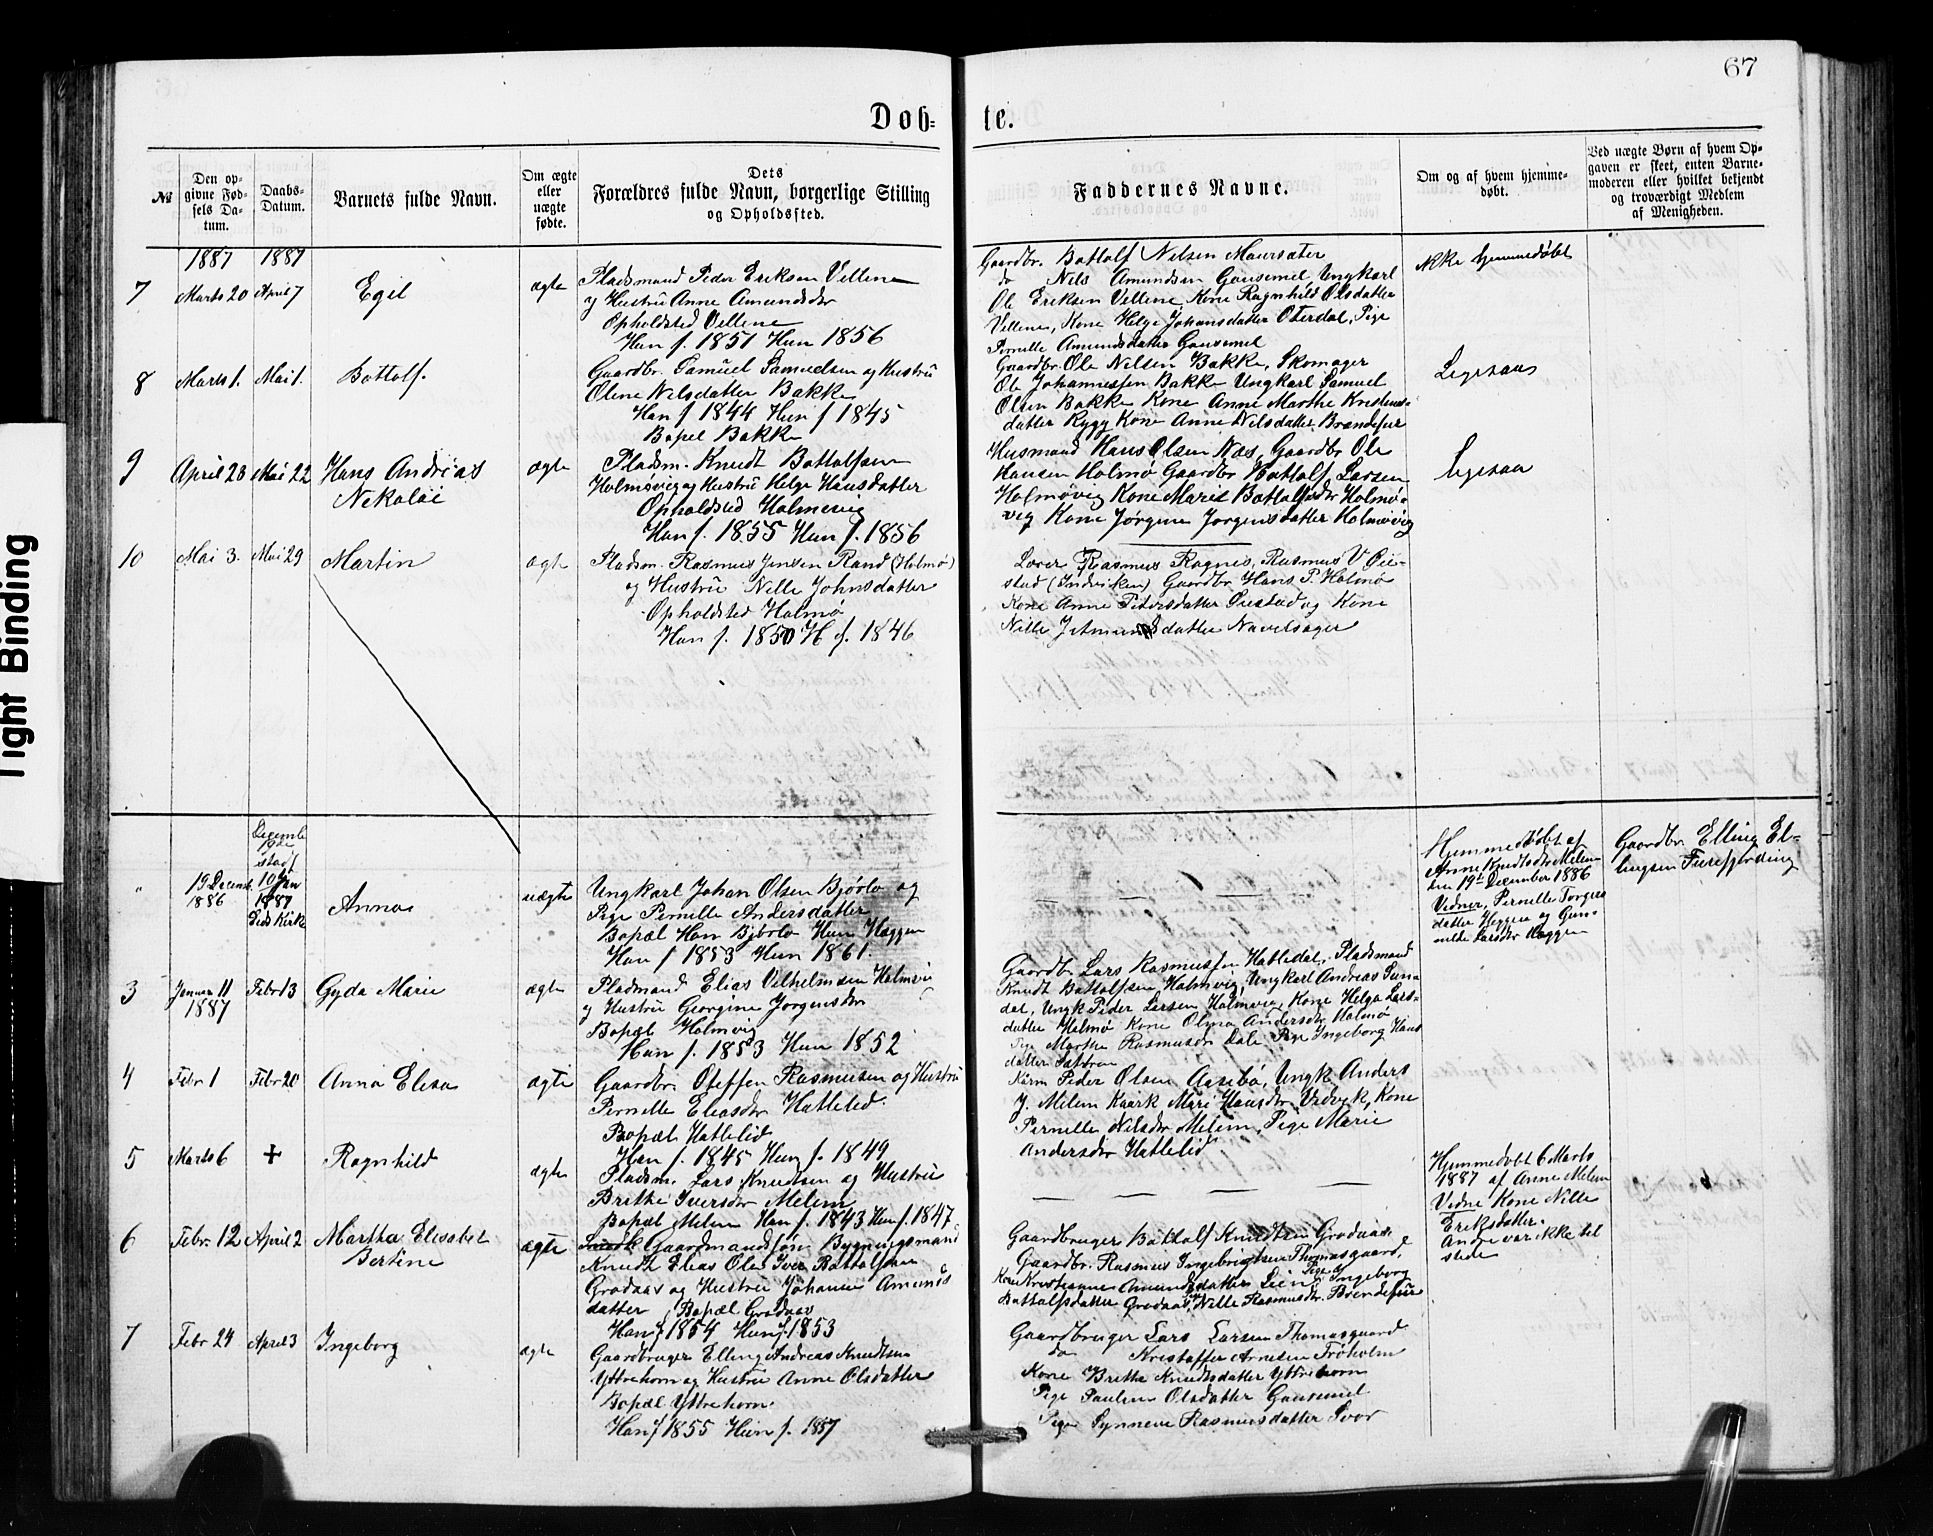 67
Døb=
te.
№
Den op-
givne Fød-
sels Da-
tum.
Daabs-
Datum.
Barnets fulde Navn.
Om ægte
eller
uægte
fødte.
Dets
Forældres fulde Navn, borgerlige Stilling
og Opholdssted.
Faddernes Navne.
Om og af hvem hjemme-
døbt.
Ved uægte Børn af hvem Op-
gaven er skeet, enten Barne-
moderen eller hvilket bekjendt
og troværdigt Medlem
af Menigheden.
1887 1887
7 Marts 20 April 7 Egil ægte
Pladsmand Peder Eriksen Vellene
og Hustru Anne Amundsdtr
Opholdsted Vellene
Han f. 1851 Hun 1856
Gaardbr. Battolf Nilsen Maursæter
do Nils Amundsen Gausemel, Ungkarl
Ole Eriksen Vellene, Kone Ragnhild Olsdatter
Vellene, Kone Helge Johansdatter Oterdal, Pige
Pernille Amundsdatter Gausemel
Ikke hjemmedøbt
8 Marts 1. Mai 1. Battolf.
Gaardbr. Samuel Samuelsen og Hustru
Oline Nilsdatter Bakke
Han f 1844 Hun f 1845
Bopel Bakke
Gaardbr. Ole Nilsen Bakke, Skomager
Ole Johannessen Bakke Ungkarl Samuel
Olsen Bakke Kone Anne Marthe Kristens-
datter Rygg Kone Anne Nilsdatter
Ligesaa
9 April 28 Mai 22 Hans Andreas
Nikolai
ægte
Pladsm. Knudt Battolfsen
Holmøvig og Hustru Helge Hansdatter
Opholdsted Holmevig
Han f. 1855 Hun f. 1856
Husmand Hans Olsen Næs, Gaardbr Ole
Hansen Holmø Gaardbr Battolf Larsen
Holmøvig Kone Marie Battolfsdtr Holmø-
vig Kone Jørgine Jørgensdatter Holmøvig
ligesaa
10 Mai 3. Mai 29 Martin ægte
Pladsm. Rasmus Jensen Rand (Holmø)
og Hustru Nille Johnsdatter
Opholdsted Holmø
Han f. 1850 H f. 1846
Lærer Rasmus Ragnes, Rasmus V Øie-
stad (Indviken) Gaardbr Hans P. Holmø
Kone Anne Pedersdatter Øiestad og Kone
Nille datter Navelsager
" 19 Decemb.
1886
Decemb
19de
stadf
10 Jan
1887
Eids Kirke
Anna uægte
Ungkarl Johan Olsen Bjørlo og
Pige Pernille Andersdatter
Bopæl Han Bjørlo Hun Heggen
Han f 1853 Hun 1861.
Hjemmedøbt af
Anne Knudtsdtr Melem
den 19de December 1886
Vidner, Pernille Torgers
datter Heggen og Gun-
nilde Larsdtr Heggen
Gaardbr Elling El-
lingsen Furefjording
3 Januar 11
1887
Febr 13 Gyda Marie ægte
Pladsmand Elias Vilhelmsen Holmvig
og Hustru Georgine Jørgensdtr
Bopæl Holmvig
Han f. 1853 Hun 1852
Gaardbr Lars Rasmussen Hatledal, Pladsmand
Knudt Battolfsen Holmvig, Ungkarl Andreas
dal, Ungk Peder Larsen Holmvig, Kone Helga Lars-
datter Holmø Kone Olina Andersdtr Holmø
Pige Marthe Rasmusdtr Dale Pige Ingeborg Hans
datter
4 Febr 1 Febr 20 Anna Elisa ægte
Gaardbr Steffen Rasmussen og Hustru
Pernille Eliasdtr Hatlelid.
Bopæl Hatlelid
Han f. 1845 Hun f. 1849
Peder Olsen Aasebø, Ungk Anders
J. Melem Mari Hansdtr Vedvik, Kone
Pernille Nilsdtr Melem, Pige Marie
Andersdtr Hatlelid
5 Marts 6 + Ragnhild ægte
Pladsm. Lars Knudtsen og Hustru
Brithe Iversdtr Melem
Bopæl Melem Han f. 1843 Hun f. 1847.
Hjemmedøbt 6 Marts
1887 af Anne Melem
Vidne Kone Nille
Eriksdatter.
Andre var ikke til
stede
6 Febr. 12 April 2 Martha Elisabet
Bertine
ægte
Gaardmandssøn Bygningsmand
Knudt Elias Ole Iver Battolfsen
Grodaas og Hustru Johanne Amunds
datter Bopæl Grodaas
Han f 1854 Hun f. 1853
Gaardbruger Battolf Knudtsen Grodaas,
Gaardbr. Rasmus Ingebrigtsen Thomasgaard,
Kone Kristianne Amundsdatter Pige Ingeborg
Battolfsdatter Grodaas, Nille Rasmusdtr.
7 Febr 24 April 3 Ingeborg ægte
Gaardbruger Elling Andreas Knudtsen
Yttrehorn og Hustru Anne Olsdatter
Bopæl Yttrehorn.
Han f 1855 Hun f. 1857
Gaardbruger Lars Larsen Thomasgaard
do Kristoffer Arnesen Frøholm
Kone Brithe Knudtsdatter Yttrehorn
Pige Pauline Olsdatter Gausemel
Pige Synneve Rasmusdatter Svor
Tight Binding